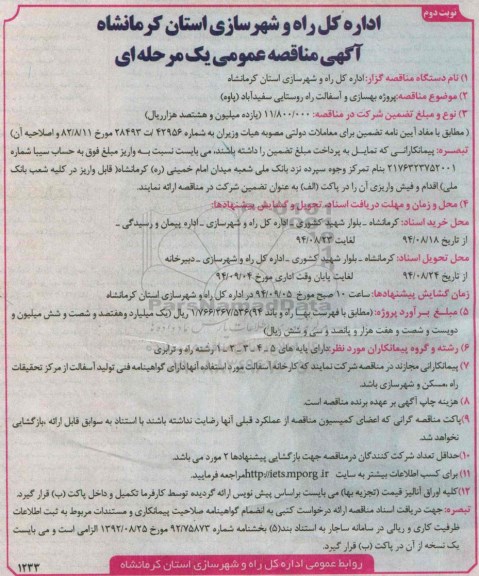 نوبت دوم
اداره کل راه و شهرسازی استان کرمانشاه
آگهی مناقصه عمومی یک مرحله ای
۱) نام دستگاه مناقصه گزار: اداره کل راه و شهرسازی استان کرمانشاه
۲) موضوع مناقصه: پروژه بهسازی و آسفالت راه روستایی سفیدآباد (پاوه)
۳) نوع و مبلغ تضمین شرکت در مناقصه: ۱۱/۸۰۰/۰۰۰ (یازده میلیون و هشتصد هزارریال)
( مطابق با مفاد آیین نامه تضمین برای معاملات دولتی مصوبه هیات وزیران به شماره ۴۲۹۵۶ /ت ۲۸۴۹۳ مورخ ۸۲/۸/۱۱ و اصلاحیه آن)
تبصره: پیمانکارانی که تمایل به پرداخت مبلغ تضمین را داشته باشند، می بایست نسبت به واریز مبلغ فوق به حساب سیبا شماره
۲۱۷۶۴۳۳۷۵۲۰۰۱ بنام تمرکز وجوه سپرده نزد بانک ملی شعبه میدان امام خمینی (ره) کرمانشاه( قابل واریز در کلیه شعب بانک
ملی) اقدام و فیش واریزی آن را در پاکت (الف) به عنوان تضمین شرکت در مناقصه ارائه نمایند.
۴) محل و زمان و مهلت دریافت اسناد، تحویل و گشایش پیشنهادها:
محل خرید اسناد: کرمانشاه ـ بلوار شهید کشوری ـ اداره کل راه و شهرسازی ـ اداره پیمان و رسیدگی ـ
از تاریخ ۹۴/۰۸/۱۸ لغایت ۹۴/۰۸/۲۳
محل تحویل اسناد: کرمانشاه ـ بلوار شهید کشوری ـ اداره کل راه و شهرسازی ـ دبیرخانه
از تاریخ ۹۴/۰۸/۲۴ لغایت پایان وقت اداری مورخ ۹۴/۰۹/۰۴
زمان گشایش پیشنهادها: ساعت ۱۰ صبح مورخ ۹۴/۰۹/۰۵ در اداره کل راه و شهرسازی استان کرمانشاه
۵) مبلغ برآورد پروژه: (مطابق با فهرست بهای راه و باند ۹۴) ۱/۷۶۶/۲۶۷/۵۳۶ ریال (یک میلیارد وهفتصد و شصت و شش میلیون و
دویست و شصت و هفت هزار و پانصد و سی و شش ریال)
۶) رشته و گروه پیمانکاران مورد نظر: دارای پایه های ۵ ـ ۴ ـ ۳ ـ ۲ ـ ۱ رشته راه و ترابری
۷) پیمانکارانی مجازند در مناقصه شرکت نمایند که کارخانه آسفالت مورد استفاده آنها دارای گواهینامه فنی تولید آسفالت از مرکز تحقیقات
راه ،مسکن و شهرسازی باشد.
۸) هزینه چاپ آگهی بر عهده برنده مناقصه است.
۹) پاکت مناقصه گرانی که اعضای کمیسیون مناقصه از عملکرد قبلی آنها رضایت نداشته باشند با استناد به سوابق قابل ارائه ،بازگشایی
نخواهد شد.
۱۰) حداقل تعداد شرکت کنندگان درمناقصه جهت بازگشایی پیشنهادها ۲ مورد می باشد.
۱۱) برای کسب اطلاعات بیشتر به سایت http://iets.mporg.ir مراجعه فرمایید.
۱۲) کلیه اوراق آنالیز قیمت (تجزیه بها) می بایست براساس پیش نویس ارائه گردیده توسط کارفرما تکمیل و داخل پاکت (ب) قرار گیرد.
تبصره: جهت دریافت اسناد مناقصه ارائه درخواست کتبی به انضمام گواهینامه صلاحیت پیمانکاری و مستندات مربوط به ثبت اطلاعات
ظرفیت کاری و ریالی در سامانه ساجار به استناد بند(۵) بخشنامه شماره ۹۲/۷۵۸۷۳ مورخ ۱۳۹۲/۰۸/۲۵ الزامی است و می بایست
یک نسخه از آن در پاکت (ب) قرار گیرد.
روابط عمومی اداره کل راه و شهرسازی استان کرمانشاه
۱۲۳۳